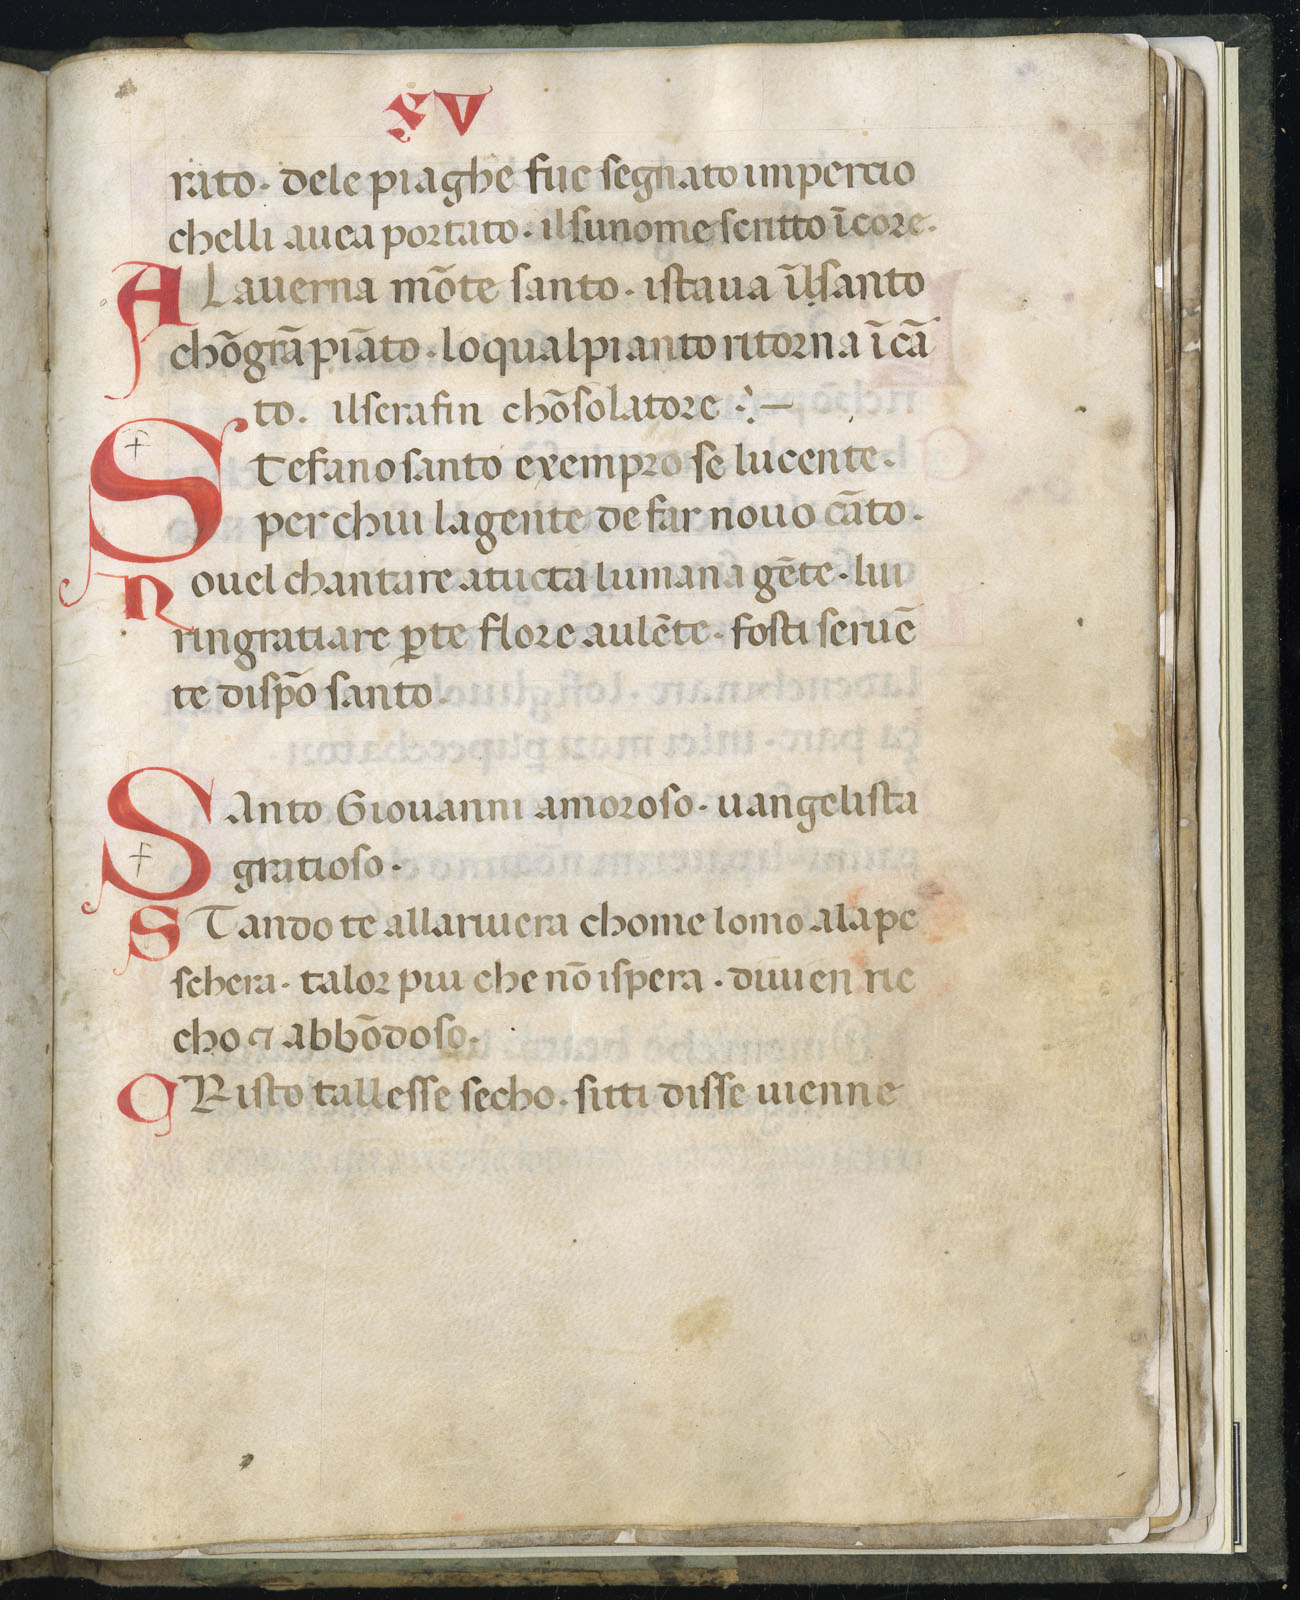 XV
rato· dele piaghe fue segnato impercio
chelli auea portato· ilsunome scritto ī core·
A Lauerna mōte santo· istaua īlsanto
chōgrā piāto· loqual pianto ritorna ī cā
to. ilserafin chōsolatore
Stefano santo exempro se lucente·
per chui lagente de far nouo cāto·
Nouel chantare atucta lumana gēte· lui
ringratiare ꝑte flore aulēte· fosti seruē
te dispō santo·
SAnto Giouanni amoroso· uangelista
gratioso·
STando te allariuera chome lomo alape
schera· talor piu che nō ispera· diuen ric
cho ⁊ abbōdoso·
CRisto tallesse secho· sitti disse uienne